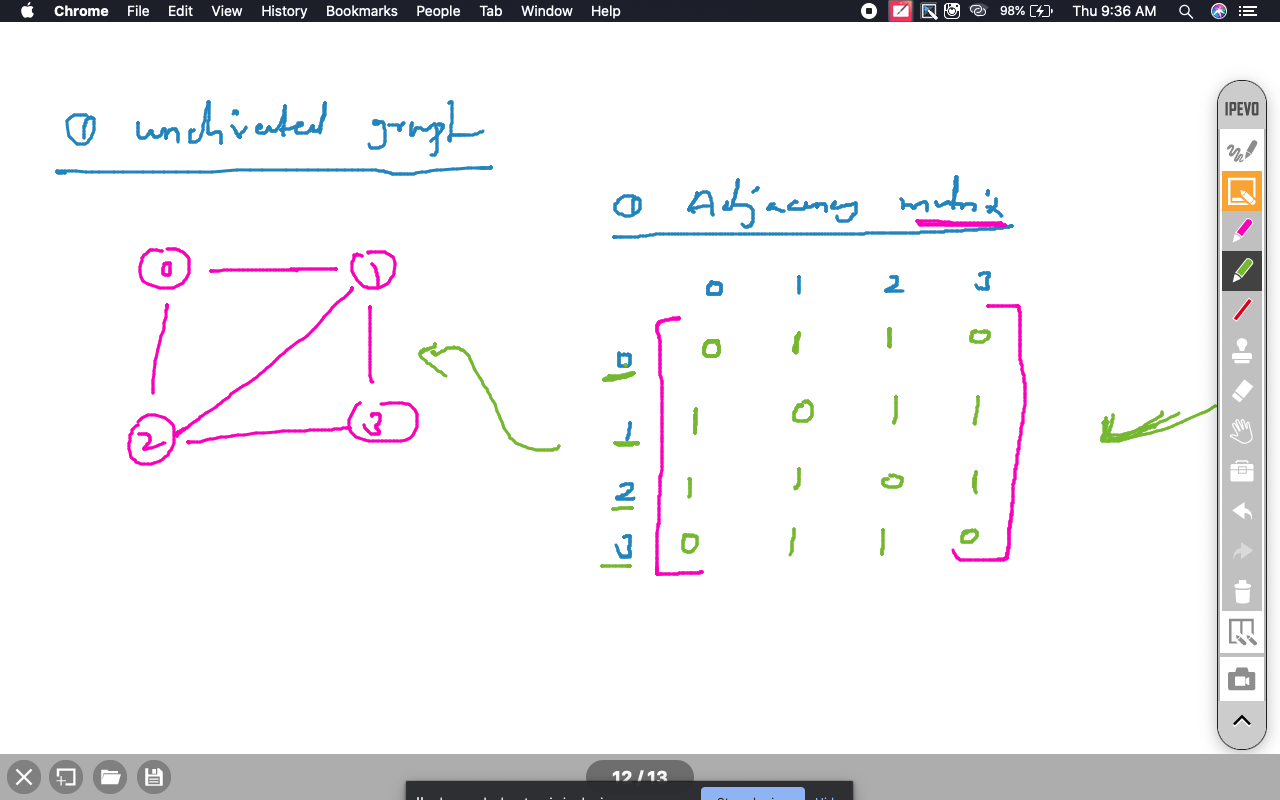 Chrome File Edit View History Bookmarks People Tab Window Help 98% Thu 9:36 AM
① undirected graph
IPEVO
① Adjacency matrix
0 1
2 3
0 1 2 3
0 0 1 1 0
1 1 0 1 1
2 1 1 0 1
3 0 1 1 0
12 / 13